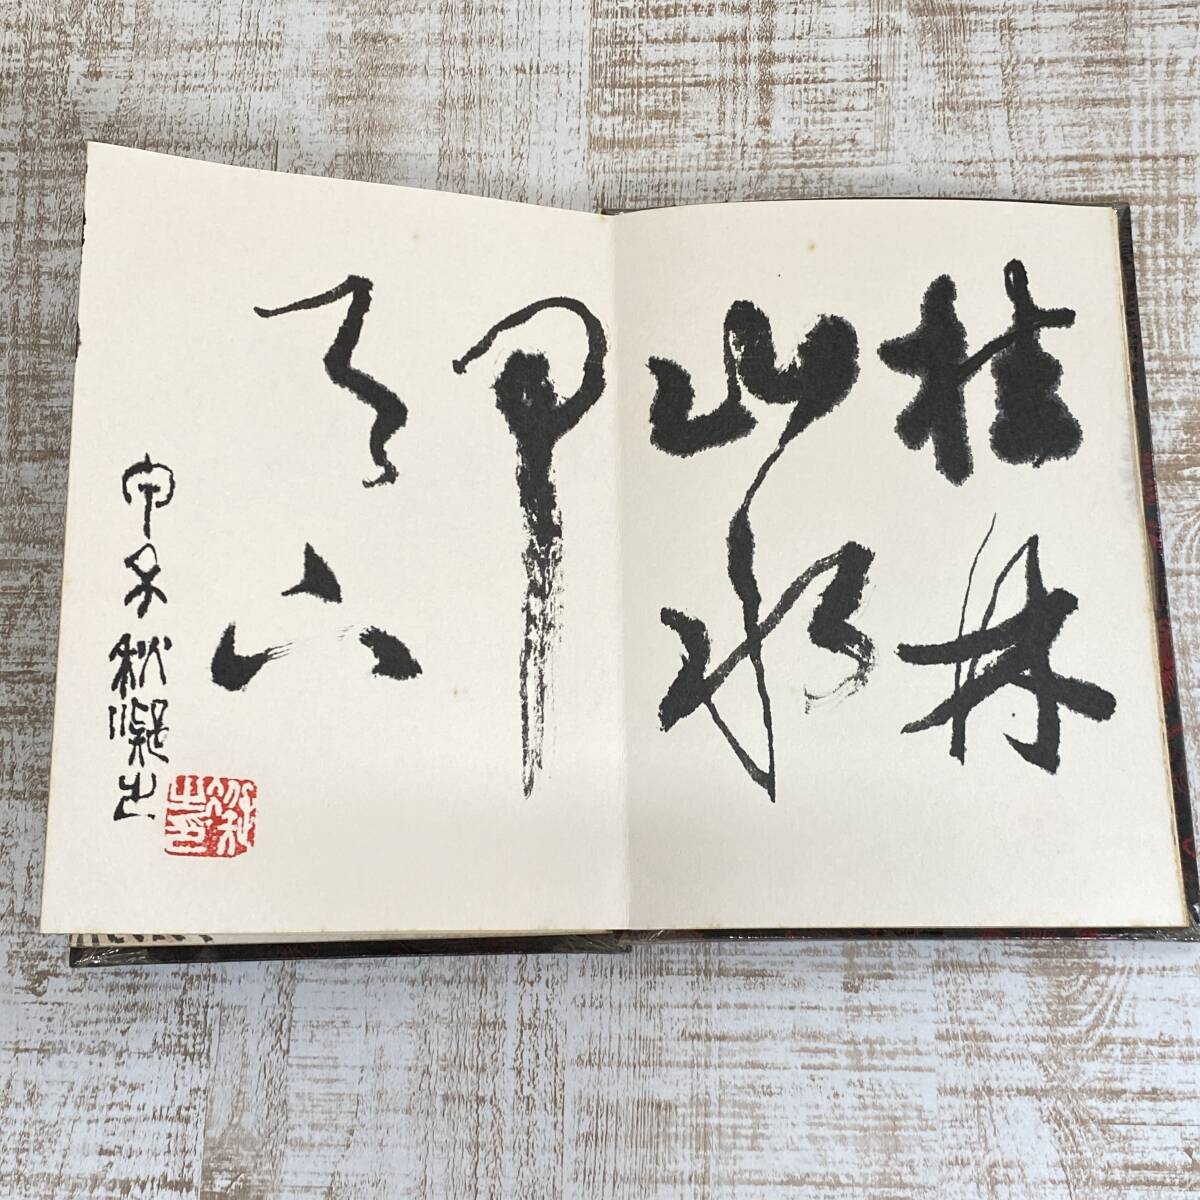 桂林
山水
甲
天下
甲子秋凝之